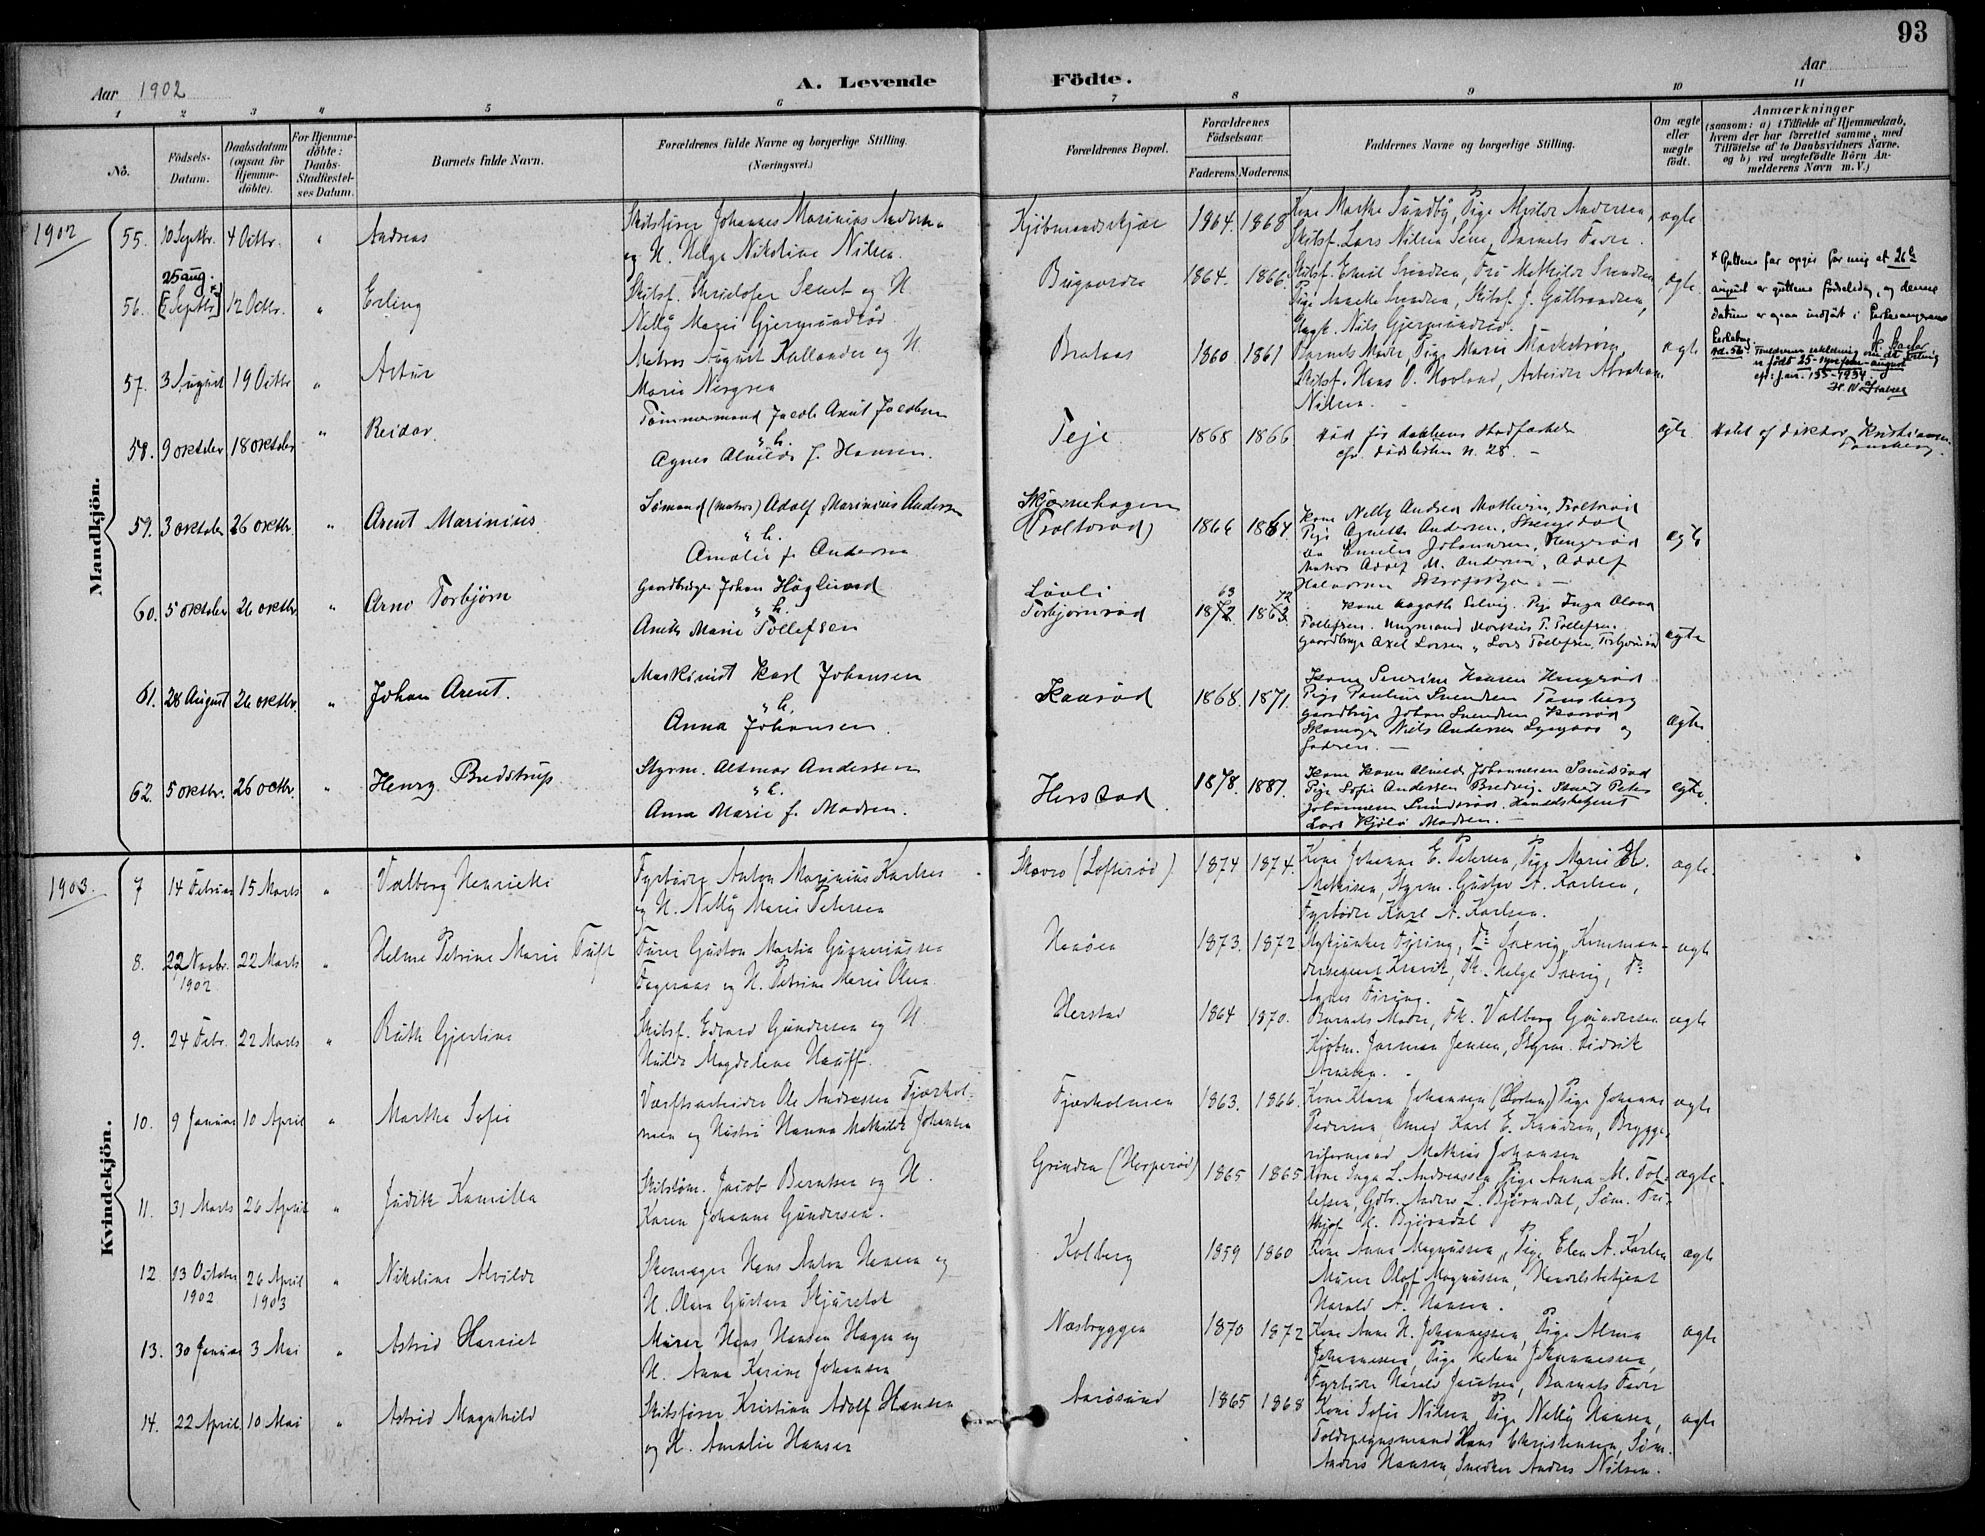 93
Aar 1902
A. Levende Födte.
Aar
1 2 3 4 5 6 7 8 9 10 11
No.
Födsels-Datum.
Daabsdatum (ogsaa for Hjemme-döbte).
For Hjemme-döbte: Daabs-Stadfæstel-ses Datum.
Barnets fulde Navn.
Forældrenes fulde Navne og borgerlige Stilling. (Næringsvei.)
Forældrenes Bopæl.
Forældrenes Födselsaar.
Faderens. Moderens.
Faddernes Navne og borgerlige Stilling.
Om ægte eller uægte födt.
Anmærkninger (saasom: a) i Tilfælde af Hjemmedaab, hvem der har forrettet samme, med Tilföielse af to Daabsvidners Navne, og b) ved uægtefödte Börn An-melderens Navn m. V.)
Mandkjön.
1902
55. 10 Septbr. 4 Octbr. " Andreas
Skibsfører Johannes Marinius Andersen
og H. Helga Nikoline Nilsen.
1864. 1868
Kone Marthe Sundby, Pige Alvilde Andersen,
Skibsf. Lars Nilsen Sem, Barnets Fader.
ægte
25 aug.
56. 12 Octbr. " Erling
Skibsf. Kristofer Semt og H.
Nelly Marie Gjermundrød.
Bugaarden 1864. 1866.
Skibsf. Emil Svendsen, Frk Mathilde Svendsen
Pige Svendsen, Skibsf. J. Gulbrandsen,
Ungk. Nils Gjermundrød.
ægte.
57. 3 August 19 Octbr " Artur
Matros August Kallander og H.
Marie Nergren
Brataas 1860 1861
Barnets Moder, Pige Marie Markstrøm,
Skibsf. Hans O. Hovland, Arbeider Abraham
Nilsen.
ægte
58. 9 oktober 18 oktober " Reidar.
Tømmermand Jacob Arent Jacobsen
" h.
Agnes Alvilde f. Hansen.
Teje 1868 1866
død før daabens Stadfæstelse
cfr. dødslisten n. 28. —
ægte
Døbt af doktor Kristiansen
Tønsberg.
59. 3 oktober 26 oktbr. " Arent Marinius.
Sømand (Matros) Adolf Marinius Andersen
" h.
Amalie f. Andersen
(Troltsrød) 1866 1864.
Kone Nelly Andrea Mathisen, Troltsrød
Pige Agnethe Andersen,
Do Emilie Johannesen,
Matros Adolf M. Andersen, Adolf
Halvorsen
ægte
60. 5 oktober 26 oktbr " Arne Torbjørn
Gaardbruger Johan Höglund
" h.
Anette Marie Tollefsen
Løvli
Torbjørnrød
63 72
1872. 1863.
Kone Agathe Selvig. Pige Inga Olava
Tollefsen. Ungmand Markus T. Tollefsen.
Gaardbruger Axel Larsen " Lars Tollefsen, Torbjørnrød
ægte
61. 28 August 26 oktbr. " Johan Arent.
Maskinist Karl Johansen
" h.
Anna Johansen.
Kaarød 1868. 1871.
Kone Severine Hansen Hengsrød
Pige Pauline Svendsen Tønsberg
Gaardbruger Johan Svendsen Kaarød
Skomager Niels Andersen og
faderen. —
ægte
62. 5 oktbr. 26 octbr. " Henry Bredstrup.
Styrm. Altmar Andersen
" h.
Anna Marie f. Madsen.
Herstad. 1878. 1881.
Kone Alvilde Johannesen Smidsrød
Pige Sofie Andersen Bredvig. Peter
Johannesen Smidsrød. Handelsbetjent
Lars Kjølø Madsen. —
ægte.
Kvindekjön.
1903.
7 14 Februar 15 Marts " Valborg Henriette
Fyrbøder Anton Marinius Karlsen
og H. Nelly Marie Petersen
Skovro (Lofterød) 1874 1874.
Kone Johanne E. Petersen, Pige Marie H.
Mathisen, Styrm. Gustav A. Karlsen,
Fyrbøder Karl A. Karlsen.
ægte.
8. 22 Novbr. 1902 22 Marts " Helene Petrine Marie Tufst
Fører Gustav Martin Gunneriussen
Fageraas og H. Petrine Marie Olsen
1873. 1872
Agnes Firing.
ægte
9. 24 Febr. 22 Marts " Ruth Gjertine
Skibsf. Edvard Gundersen og H.
Hulda Magdalena Hauff.
Herstad 1864 1870.
Barnets Moder, Frk. Valborg Gundersen
Kjøbm. Jensen, Styrm. Didrik
Arnesen.
ægte
10. 9 Januar 10 April " Martha Sofie
Værftsarbeider Ole Andreassen Fjærhol-
men og Hustru Hanna Mathilde Johansen
Fjærholmen 1863. 1866.
Kone Klara Johansen (Horten) Pige Johanne
Pedersen, Smed Karl E. Knudsen, Brygge-
riformand Mathias Johansen
ægte
11. 31 Marts 26 April " Judith Kamilla
Skibstøm. Jacob Berntsen og H.
Karen Johanne Gundersen.
Grinden (Hesperød) 1865 1865
Kone Inga L. Andreassen Pige Anna M. Tol-
lefsen, Gdbr. Anders L. Bjørndal, Søm. Fri-
thjof H. Bjørndal
ægte.
12 13 October 1902 26 April 1903 " Nikoline Alvilde
Skomager Hans Anton Hansen og
H. Olava Gustava Skjureldt
Kolberg 1859 1860
Kone Anna Magnussen, Pige Elen A. Karlsen
Murer Olaf Magnussen, Handelsbetjent
Harald A. Hansen.
ægte
13. 30 Januar 3 Mai " Astrid Harriet
Murer Hans Hansen Hagen og
H. Anna Karine Johansen
Næsbryggen 1870 1872
Kone Anne H. Johannessen, Pige Alma
Johannessen, Pige Helene Johannessen,
Fyrbøder Harald Jacobsen, Barnets Fader
ægte
14. 22 April. 10 Mai " Astrid Magnhild
Skibsfører Kristian Adolf Hansen
og H. Amalie Hansen
Aarøsund 1865 1868
Kone Sofie Nilsen, Pige Nelly Hansen,
Toldopsynsmand Hans Christensen, Søm.
Anders Hansen, Snedker Anders Nilsen.
ægte